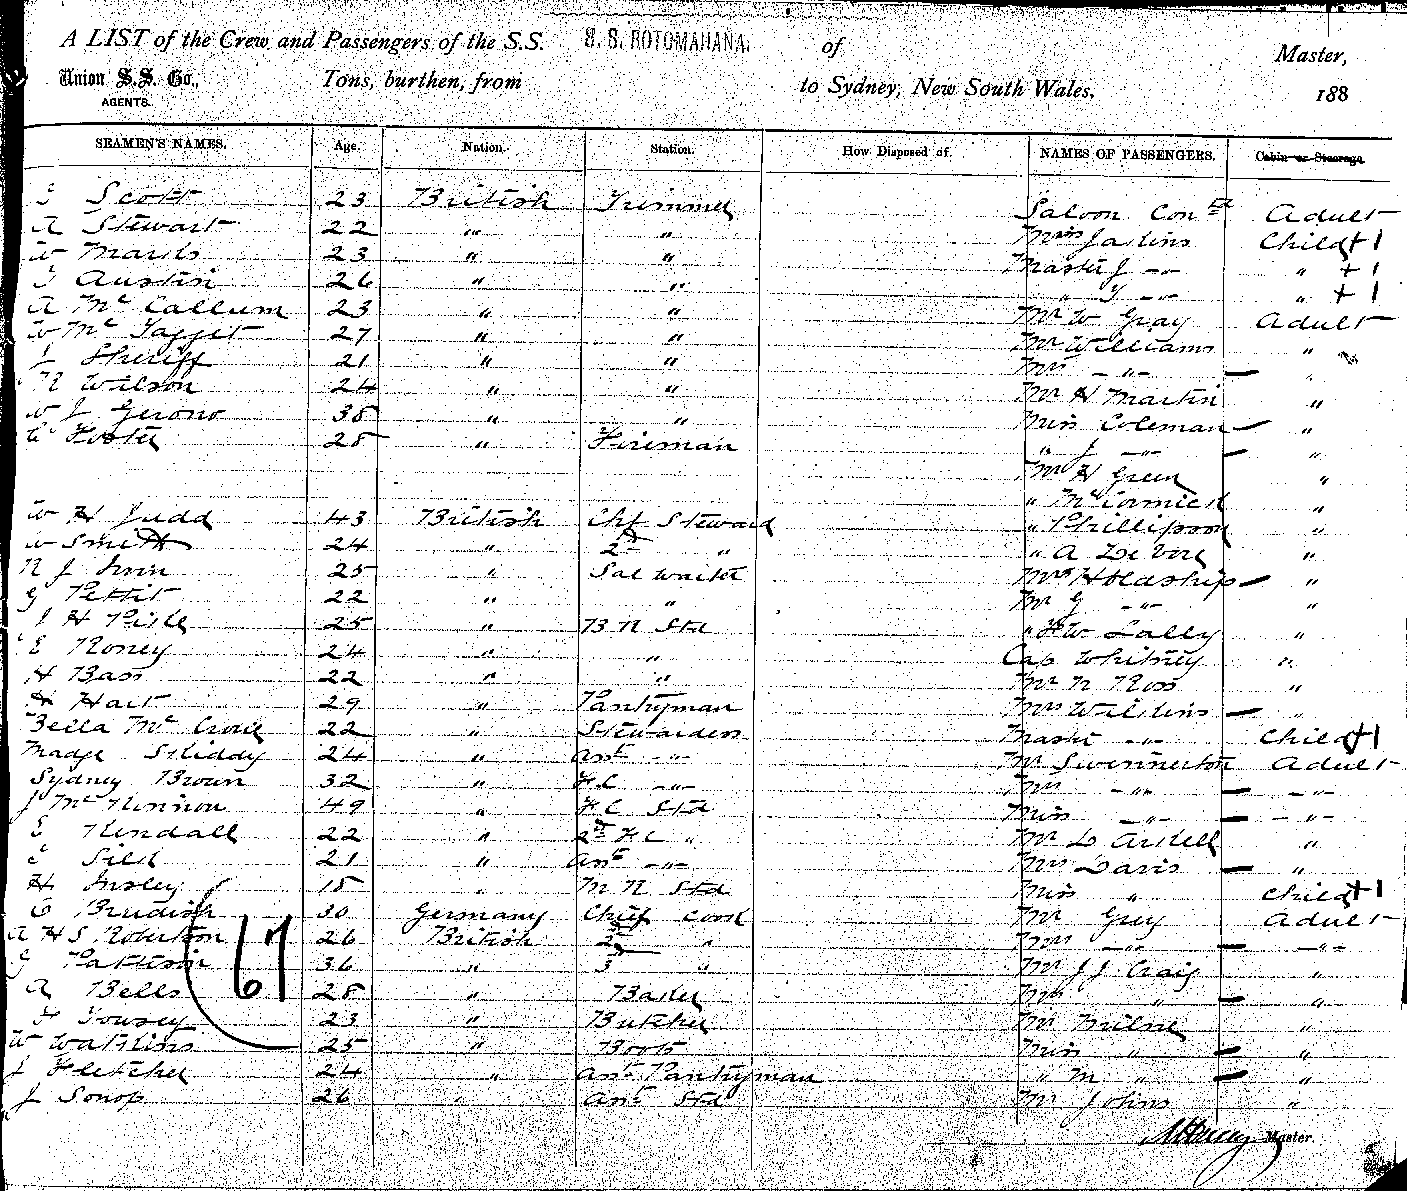 A LIST of the Crew and Passengers of the S.S. S. S. ROTOMAHANA. of Master,
Union S.S. Co., Tons, burthen, from to Sydney, New South Wales. 188
AGENTS.
SEAMEN'S NAMES. Age. Nation. Station. How Disposed of. NAMES OF PASSENGERS. Cabin or Steerage
Scott 23 British Trimmer Saloon Con Adult
A Stewart 22 " " Child +1
W 23 " " Master J -"- " +1
T Austin 26 " " " T -"- " +1
A Mc Callum 23 " " Mr W Gray Adult
W Mc Tagget 27 " " Mr Williams "
Sheriff 21 " " Mrs -"- "
N Wilson 24 " " Mr H Martin "
W J 38 " " Miss Coleman "
Foster 28 " Fireman " J -"- "
Mr H Green "
" McCormick "
W H Judd 43 British Chf Steward " Phillipson "
W Smith 24 " 2nd " " A "
N J Irvin 25 " Sal Waiter Mrs Holdship "
G Pettit 22 " " Mr G -"- "
J H 25 " B R Std " F W Lally "
E Roney 24 " " Cap Whitney "
H Bass 22 " " Mr N Ross "
H Hart 29 " Pantryman Mrs Wilkins "
Bella Mc 22 " Stewardess Master -"- Child +1
Madge Skiddy 24 " Asst -"- Mr Swinnerton Adult
Sydney Brown 32 " F.C -"- Mrs -"- -"-
J Mc Kinnon 49 " F C Std Miss -"- -"-
E Kendall 22 " 2nd F C " Mr L "
Silk 21 " Asst -"- Mrs Davis "
H Insley 18 " M R Std Miss " Child +1
C 30 Germany Chief Cook Mr Grey Adult
A H S Robertson 26 British 2nd " Mrs -"- -"-
G Pattison 36 " 3 " Mr J J Craig "
A Bells 28 " Baker Mrs " "
F Tousey 23 " Butcher Mr Milne "
W Watkins 25 " Boots Miss " "
Fletcher 24 " Asst Pantryman " M " "
J 26 " Asst Std Mr Johns "
67
Master.